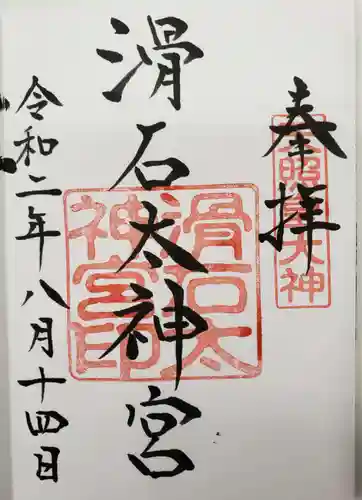 奉拝
滑石太神宮
令和二年八月十四日
滑石太
神宮印